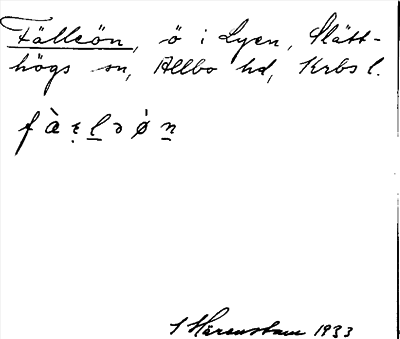 Fälleön, ö i Lyen, Slätt-
högs sn, Allbo hd, Krbs l.
f à ę l ə ȯ n
S Härenstam 1933